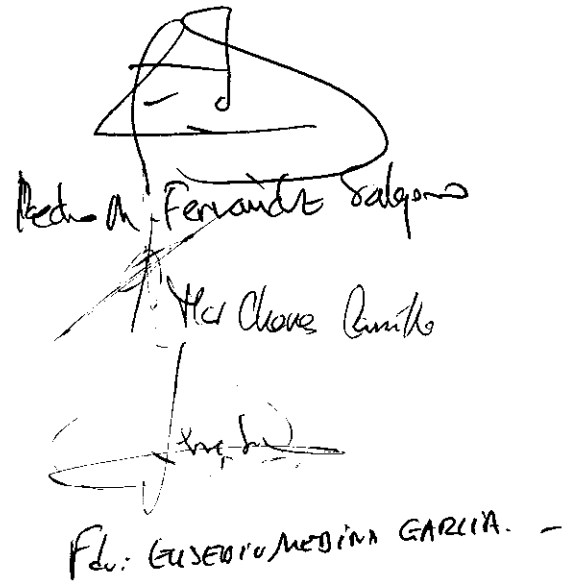 Pedro M. Fernández Salguero
Mar Chaves Carrillo
Fdo: EUSEBIO MEDINA GARCIA. -